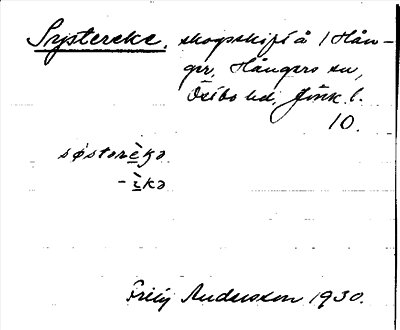 Systereke, skogskifte å 1 Hån-
ger, Hångers sn,
Östbo hd, Jönk. l.
10.
søstərèkə
-ìkə
Frity Andersson 1930.